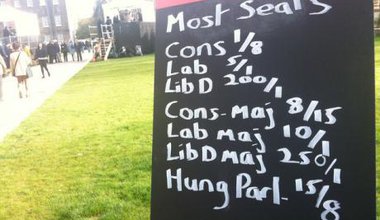 Most Seats
Cons 1/8
Lab 5/1
Lib D 200/1
Cons-Maj 8/15
Lab maj 10/1
Lib D maj 250/1
Hung Parl. 15/8